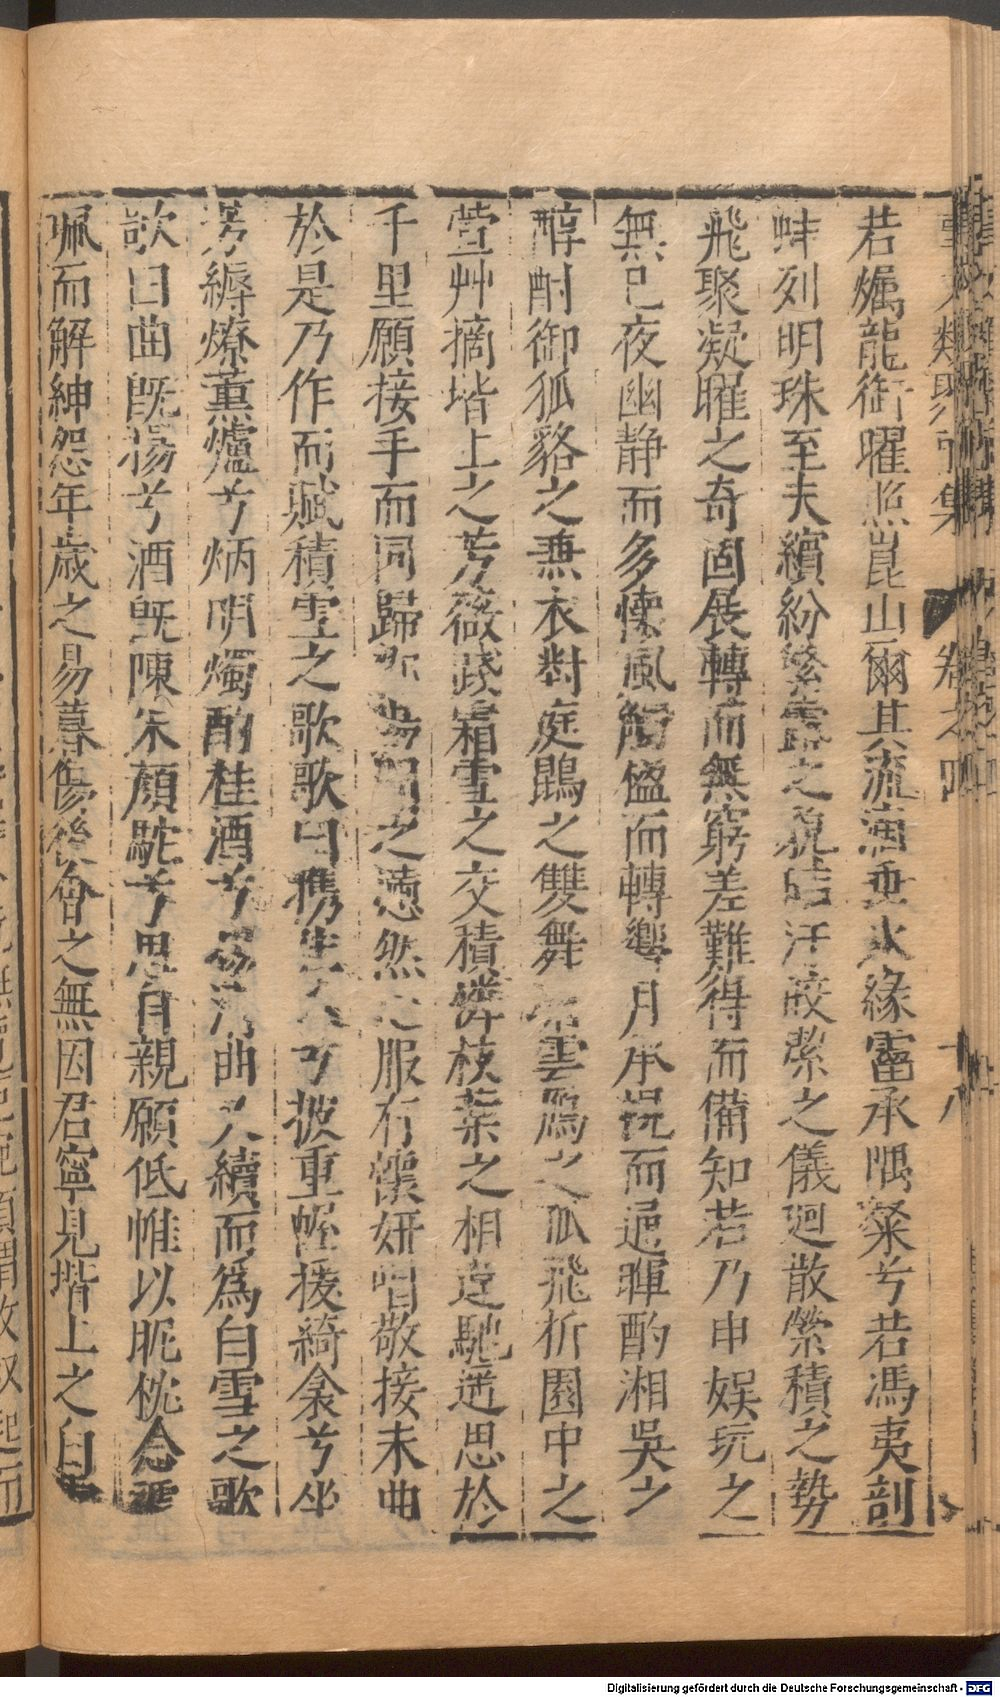 若爥龍銜曜照崑山爾其流滴垂冰緣霤承隅粲兮若馮夷剖
蚌列明珠至夫繽紛繁鶩之貌皓汗皎潔之儀迴散縈積之勢
飛聚凝曜之奇固展轉而無窮嗟難得而備知若乃申娱玩之
無已夜幽静而多懐風觸楹而轉響月承幌而通暉酌湘吳之
醇酎御狐貉之兼衣對庭鵾之雙舞瞻雲鴈之孤飛折園中之
萱艸摘堦上之芳薇踐霜雪之交積憐枝葉之相違馳遥思於
千里願接手而同歸鄒陽聞之懣然心服有懷妍唱敬接末曲
於是乃作而賦積雪之歌歌曰攜佳人兮披重幄援綺衾兮坐
芳縟燎薰爐兮炳明燭酌桂酒兮揚清曲又續而爲白雪之歌
歌曰曲旣揚兮酒旣陳朱顔酡兮思自親願低帷以昵枕念
珮而解紳怨年歲之易暮傷後會之無因君寧見堦上之白
卷之四 十八
Digitalisierung gefördert durch die Deutsche Forschungsgemeinschaft - DFG